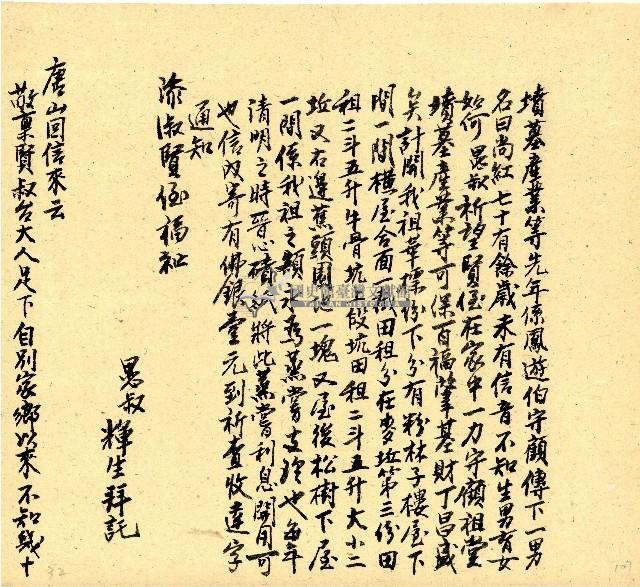 墳墓產業等先年係鳳遊伯守顧傳下一男
名曰尚紅七十有餘歲未有信音不知生男育女
如何 愚叔祈望賢侄在家中一力守顧祖堂
墳墓產業等可保百福肇基財丁昌盛
矣計開我祖韋標份下分有粉林子樓屋下
間一間橫屋合面一間田租分在麥坵第三份田
租二斗五升牛骨坑上段坑田租二斗五升大小二
坵又右邊蕉頭園地一塊又屋後松樹下屋
一間係我祖之額永為蒸嘗支理也每年
清明之時晉心積紙將此蒸嘗利息開用可
也信內寄有佛銀壹元到祈查收達字
通知
添淑賢侄福祉
愚叔 輝生拜託
唐山回信來云
敬稟賢叔台大人足下自別家鄉以來不知幾十
32